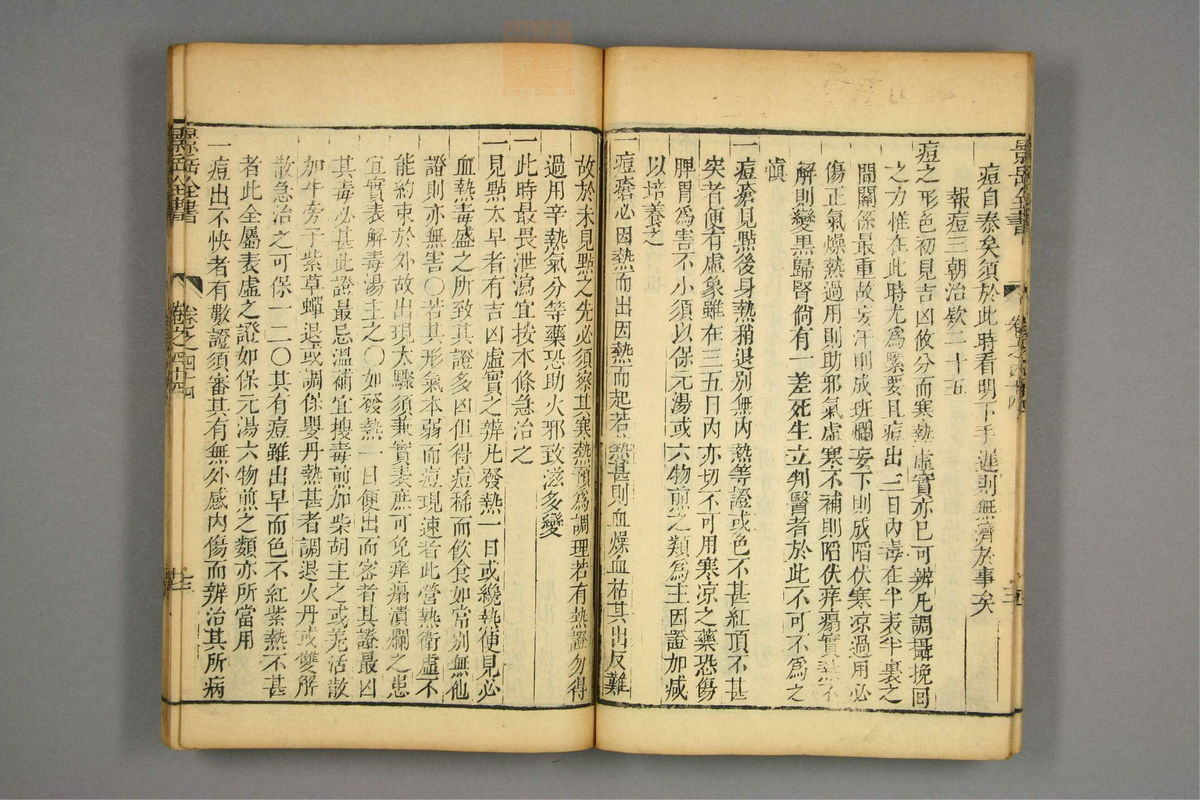 景岳全書
卷之四十四
痘自泰矣須於此時看明下手遲則無濟於事矣
報痘三朝治欵二十五
痘之形色初見吉凶攸分而寒熱虛實亦已可辨凡調攝挽回
之方惟在此時尤為緊要且痘出三日內毒在半表半裏之
間關係最重故妄汗則成斑爛妄下則成陷伏寒涼過用必
傷正氣燥熱過用則助邪氣虛寒不補則陷伏痒塌實熱不
解則變黑歸腎倘有一差死生立判醫者於此不可不為之
慎
一痘瘡見點後身熱稍退別無內熱等證或色不甚紅頂不甚
突者便有虛象雖在三五日內亦切不可用寒凉之藥恐傷
脾胃為害不小須以保元湯或六物煎之類為主因證加減
以培養之
一痘瘡必因熱而出因熱而起若熱甚則血燥血枯其出反難
故於未見點之先必須察其寒熱預為調理若有熱證勿得
過用辛熱氣分等藥恐助火邪致滋多變
一此時最畏泄瀉宜按本條急治之
一見點太早者有吉凶虛實之辨凡發熱一日或纔熱便見必
血熱毒盛之所致其證多凶但得痘稀而飲食如常別無他
證則亦無害○若其形氣本弱而痘現速者此營熱衛虛不
能約束於外故出現太驟須兼實表庶可免痒塌潰爛之患
宜實表解毒湯主之○如發熱一日便出而密者其證最凶
其毒必甚此證最忌溫補宜搜毒煎加柴胡主之或羗活散
加牛旁子紫草蟬退或調保嬰丹熱甚者調退火丹或雙解
散急治之可保一二○其有痘雖出早而色不紅紫熱不甚
者此全屬表虛之證如保元湯六物煎之類亦所當用
一痘出不快者有數證須審其有無外感內傷而辨治其所病
景岳全書
卷之四十四